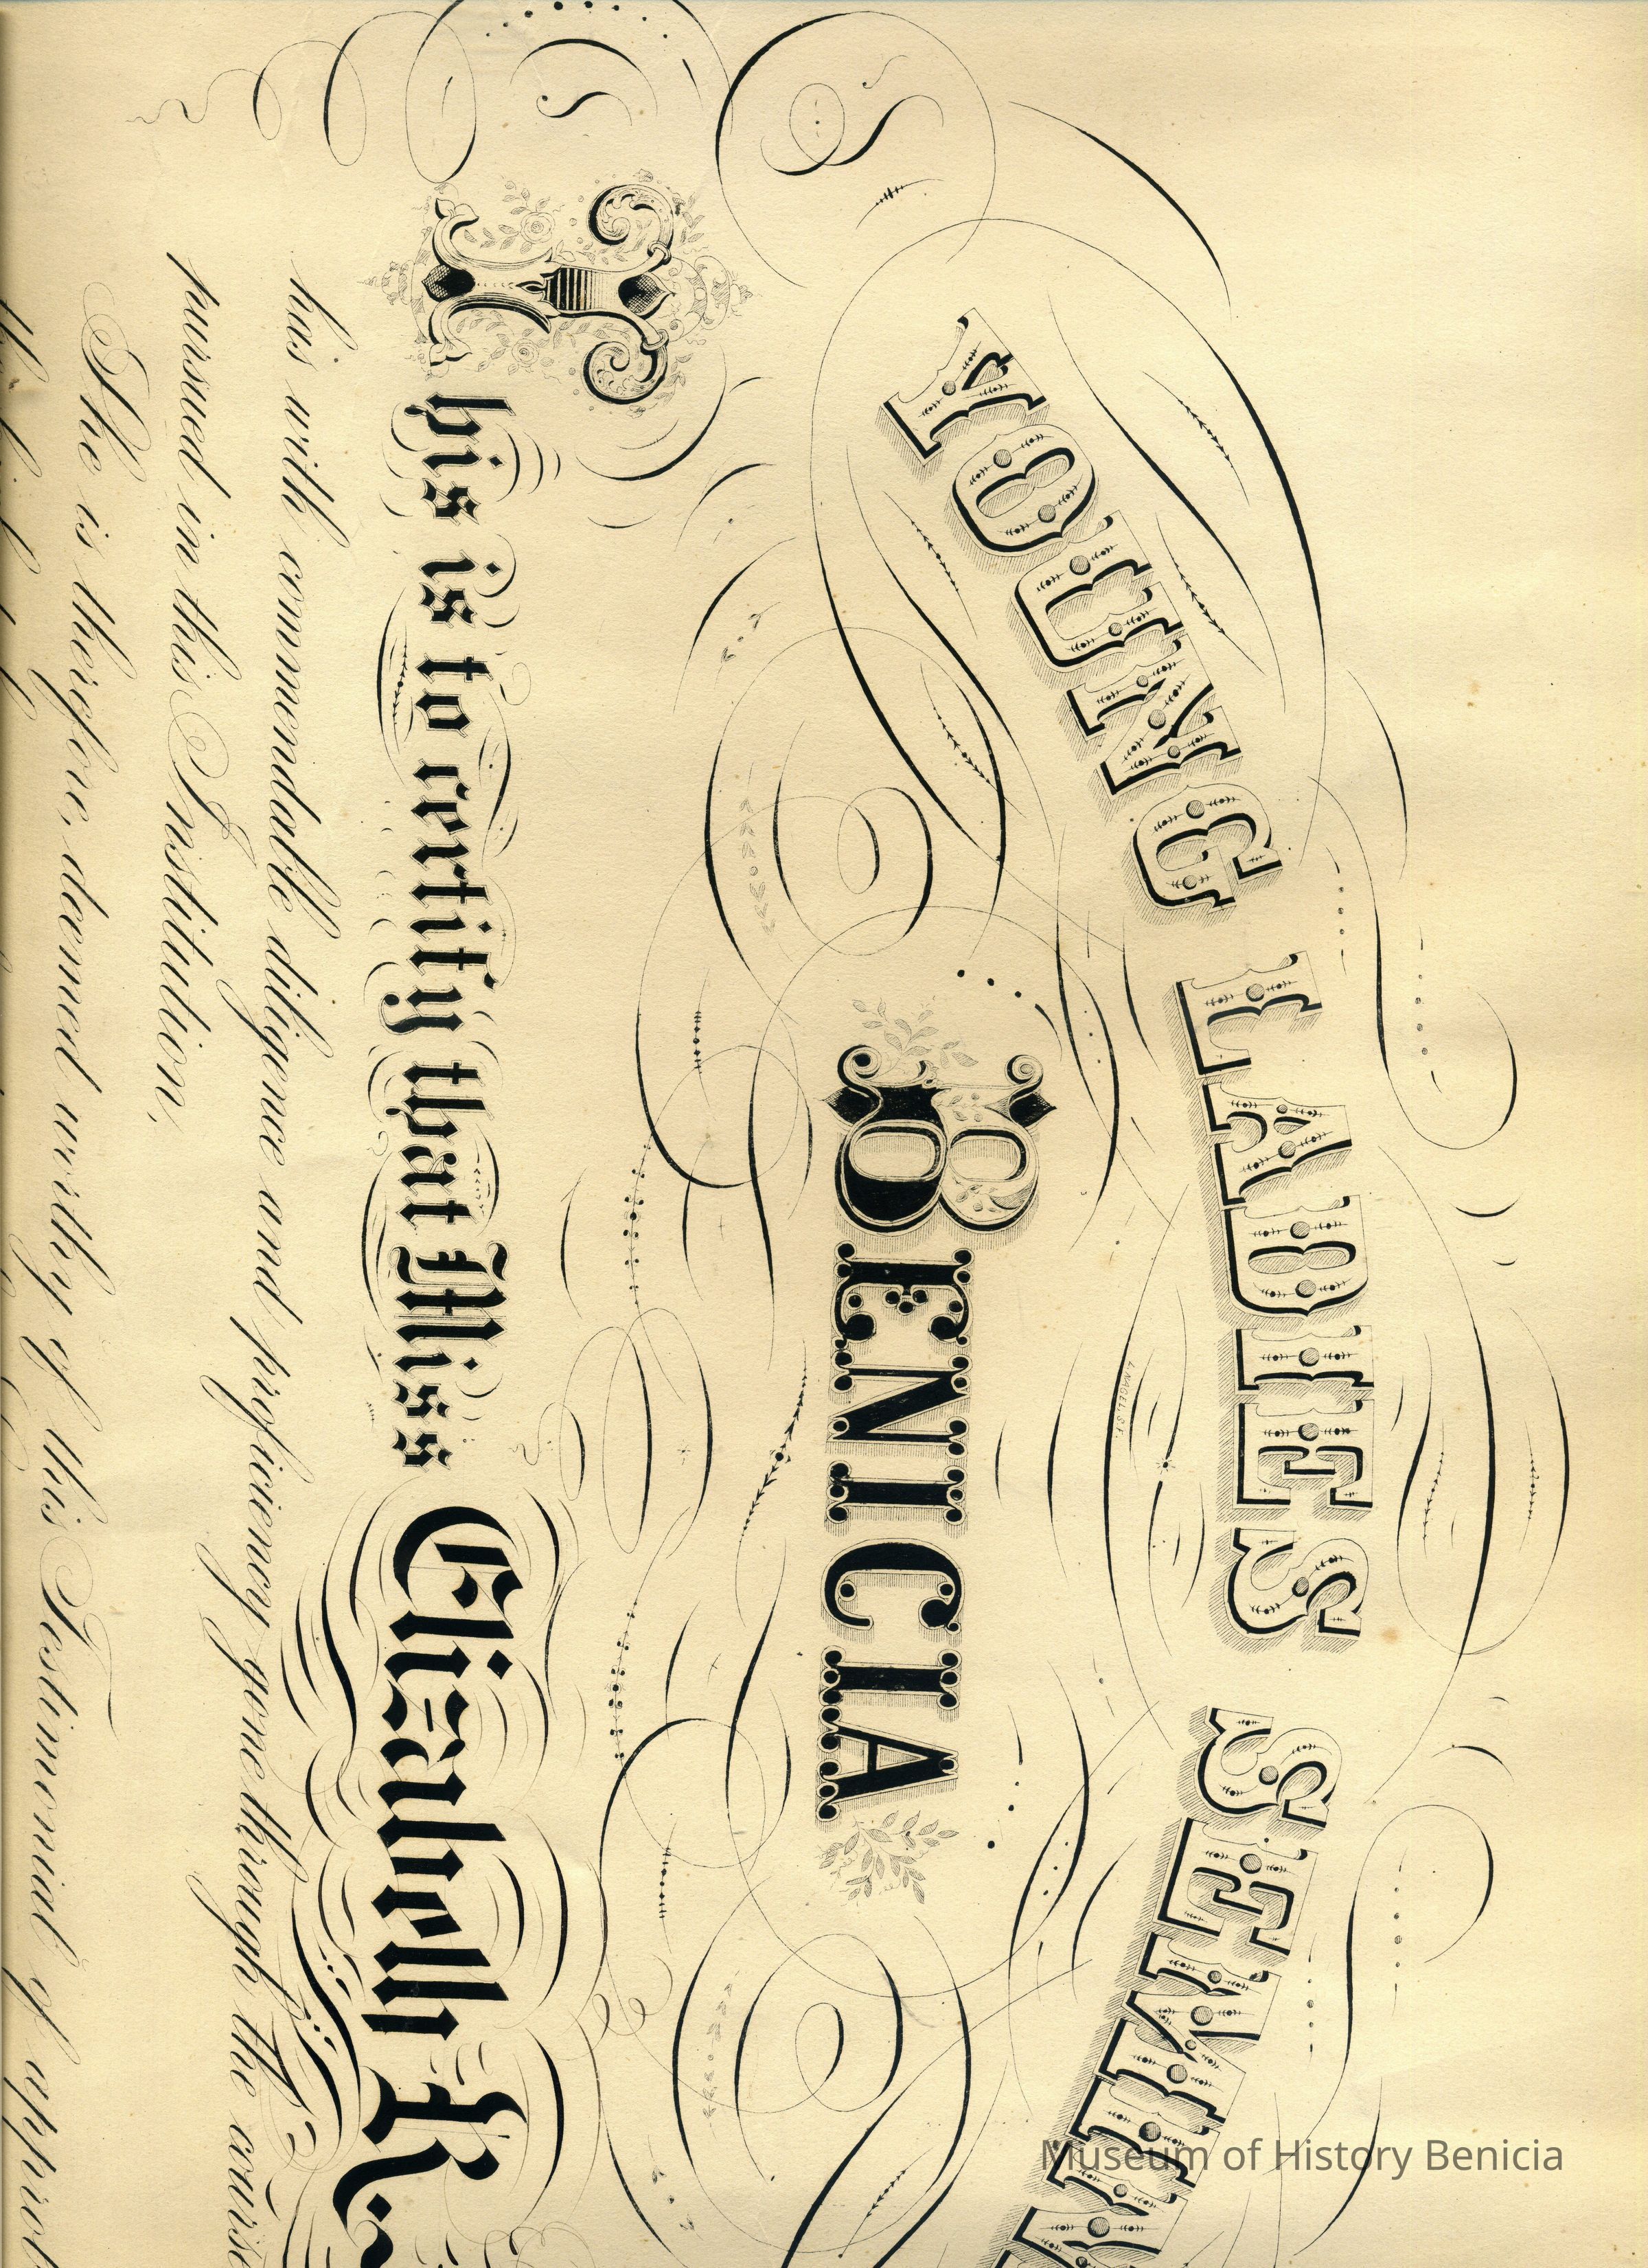 YOUNG LADIES SEMINA
L. NAGEL. S.F.
BENICIA
This is to certify that Miss Elizabeth R
has with commendable diligence and proficiency gone through the course
pursued in this Institution,
She is therefore, deemed worthy of this Testimonial of approb
Museum of History Benicia